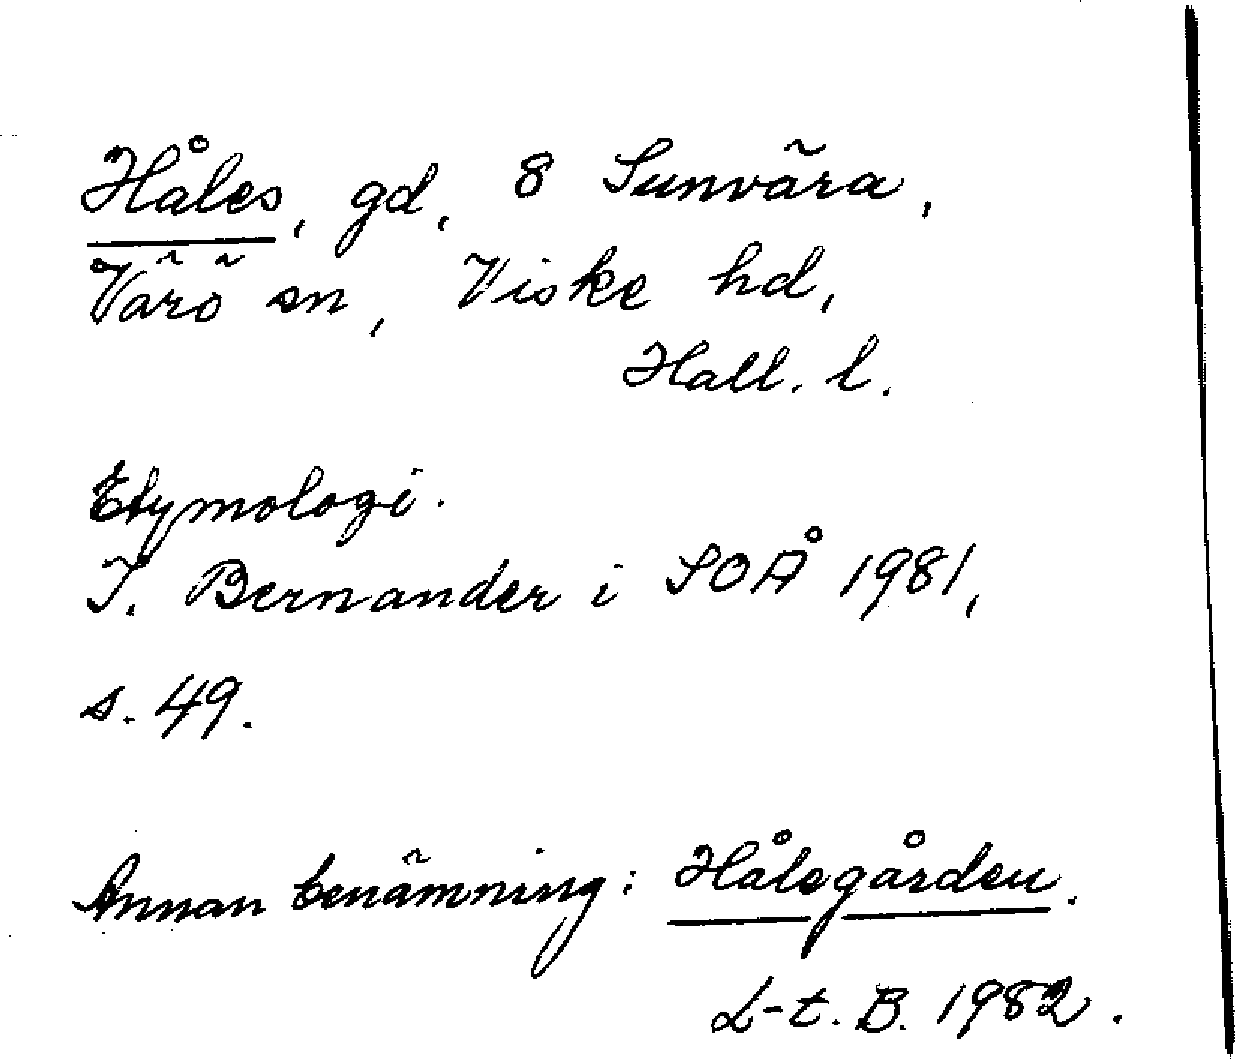 Håles, gd, 8 Sunvära,
Värö sn, Viske hd,
Hall. l.
Etymologi.
I. Bernander i SOÅ 1981,
s. 49.
Annan benämning: Hålegården.
L-t. B. 1982.